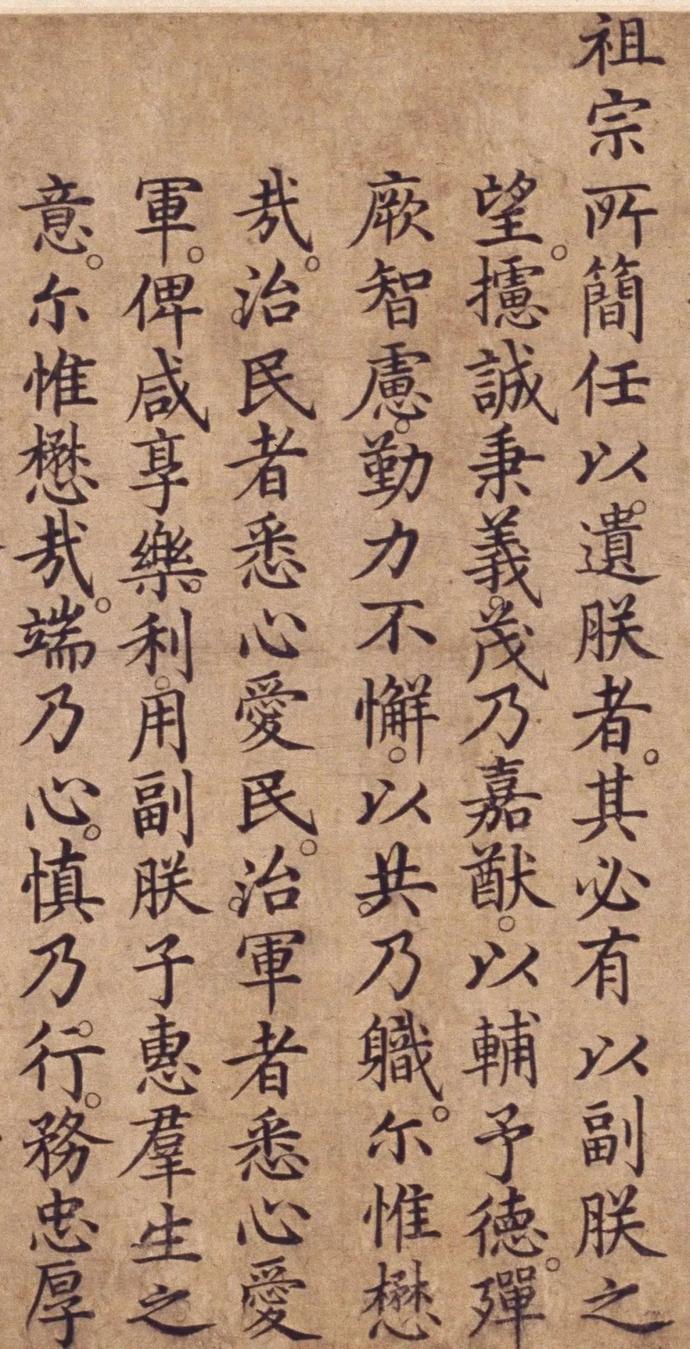 祖宗所簡任以遺朕者。其必有以副朕之
望。攄誠秉義。茂乃嘉猷。以輔予德。殫
厥智慮。勤力不懈。以共乃職。尒惟懋
㢤。治民者悉心愛民。治軍者悉心愛
軍。俾咸享樂利。用副朕子惠羣生之
意。尒惟懋㢤。端乃心。慎乃行。務忠厚